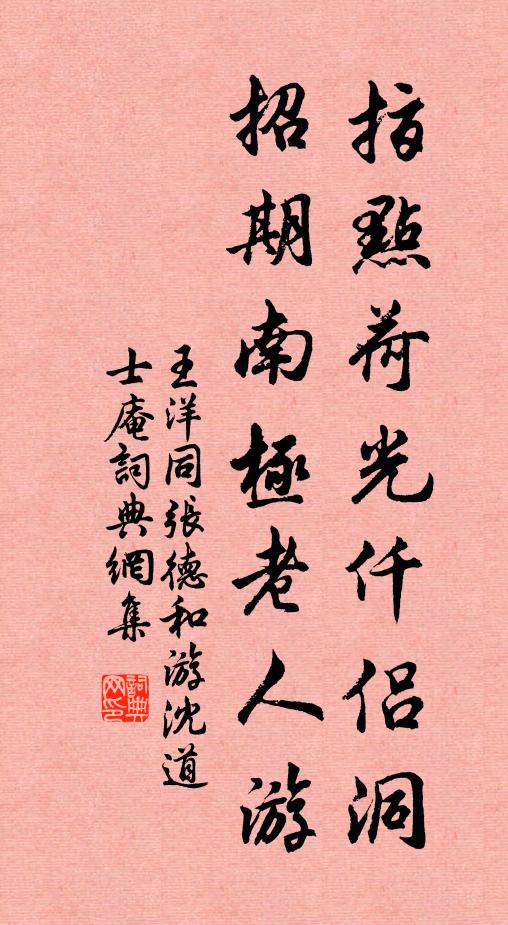 指點荷光仟侣洞
招期南極老人游
王洋同張德和游沈道
士庵詞典網集
詞典網印